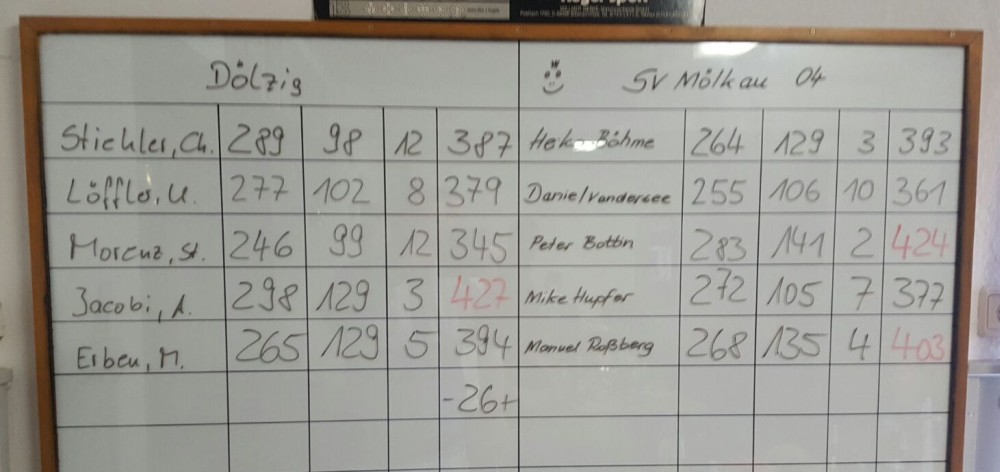 Dölzig SV Mölkau 04
Stichler, Ch. 289 98 12 387 Böhme 264 129 3 393
Löffler, U. 277 102 8 379 Daniel Vandersee 255 106 10 361
Morenz, St. 246 99 12 345 Peter Bottin 283 141 2 424
Jacobi, A. 298 129 3 427 Mike Hupfer 272 105 7 377
Erben, M. 265 129 5 394 Manuel Roßberg 268 135 4 403
-26+